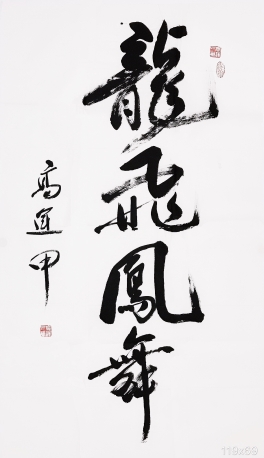 龍飛鳳舞
高運甲
119x69